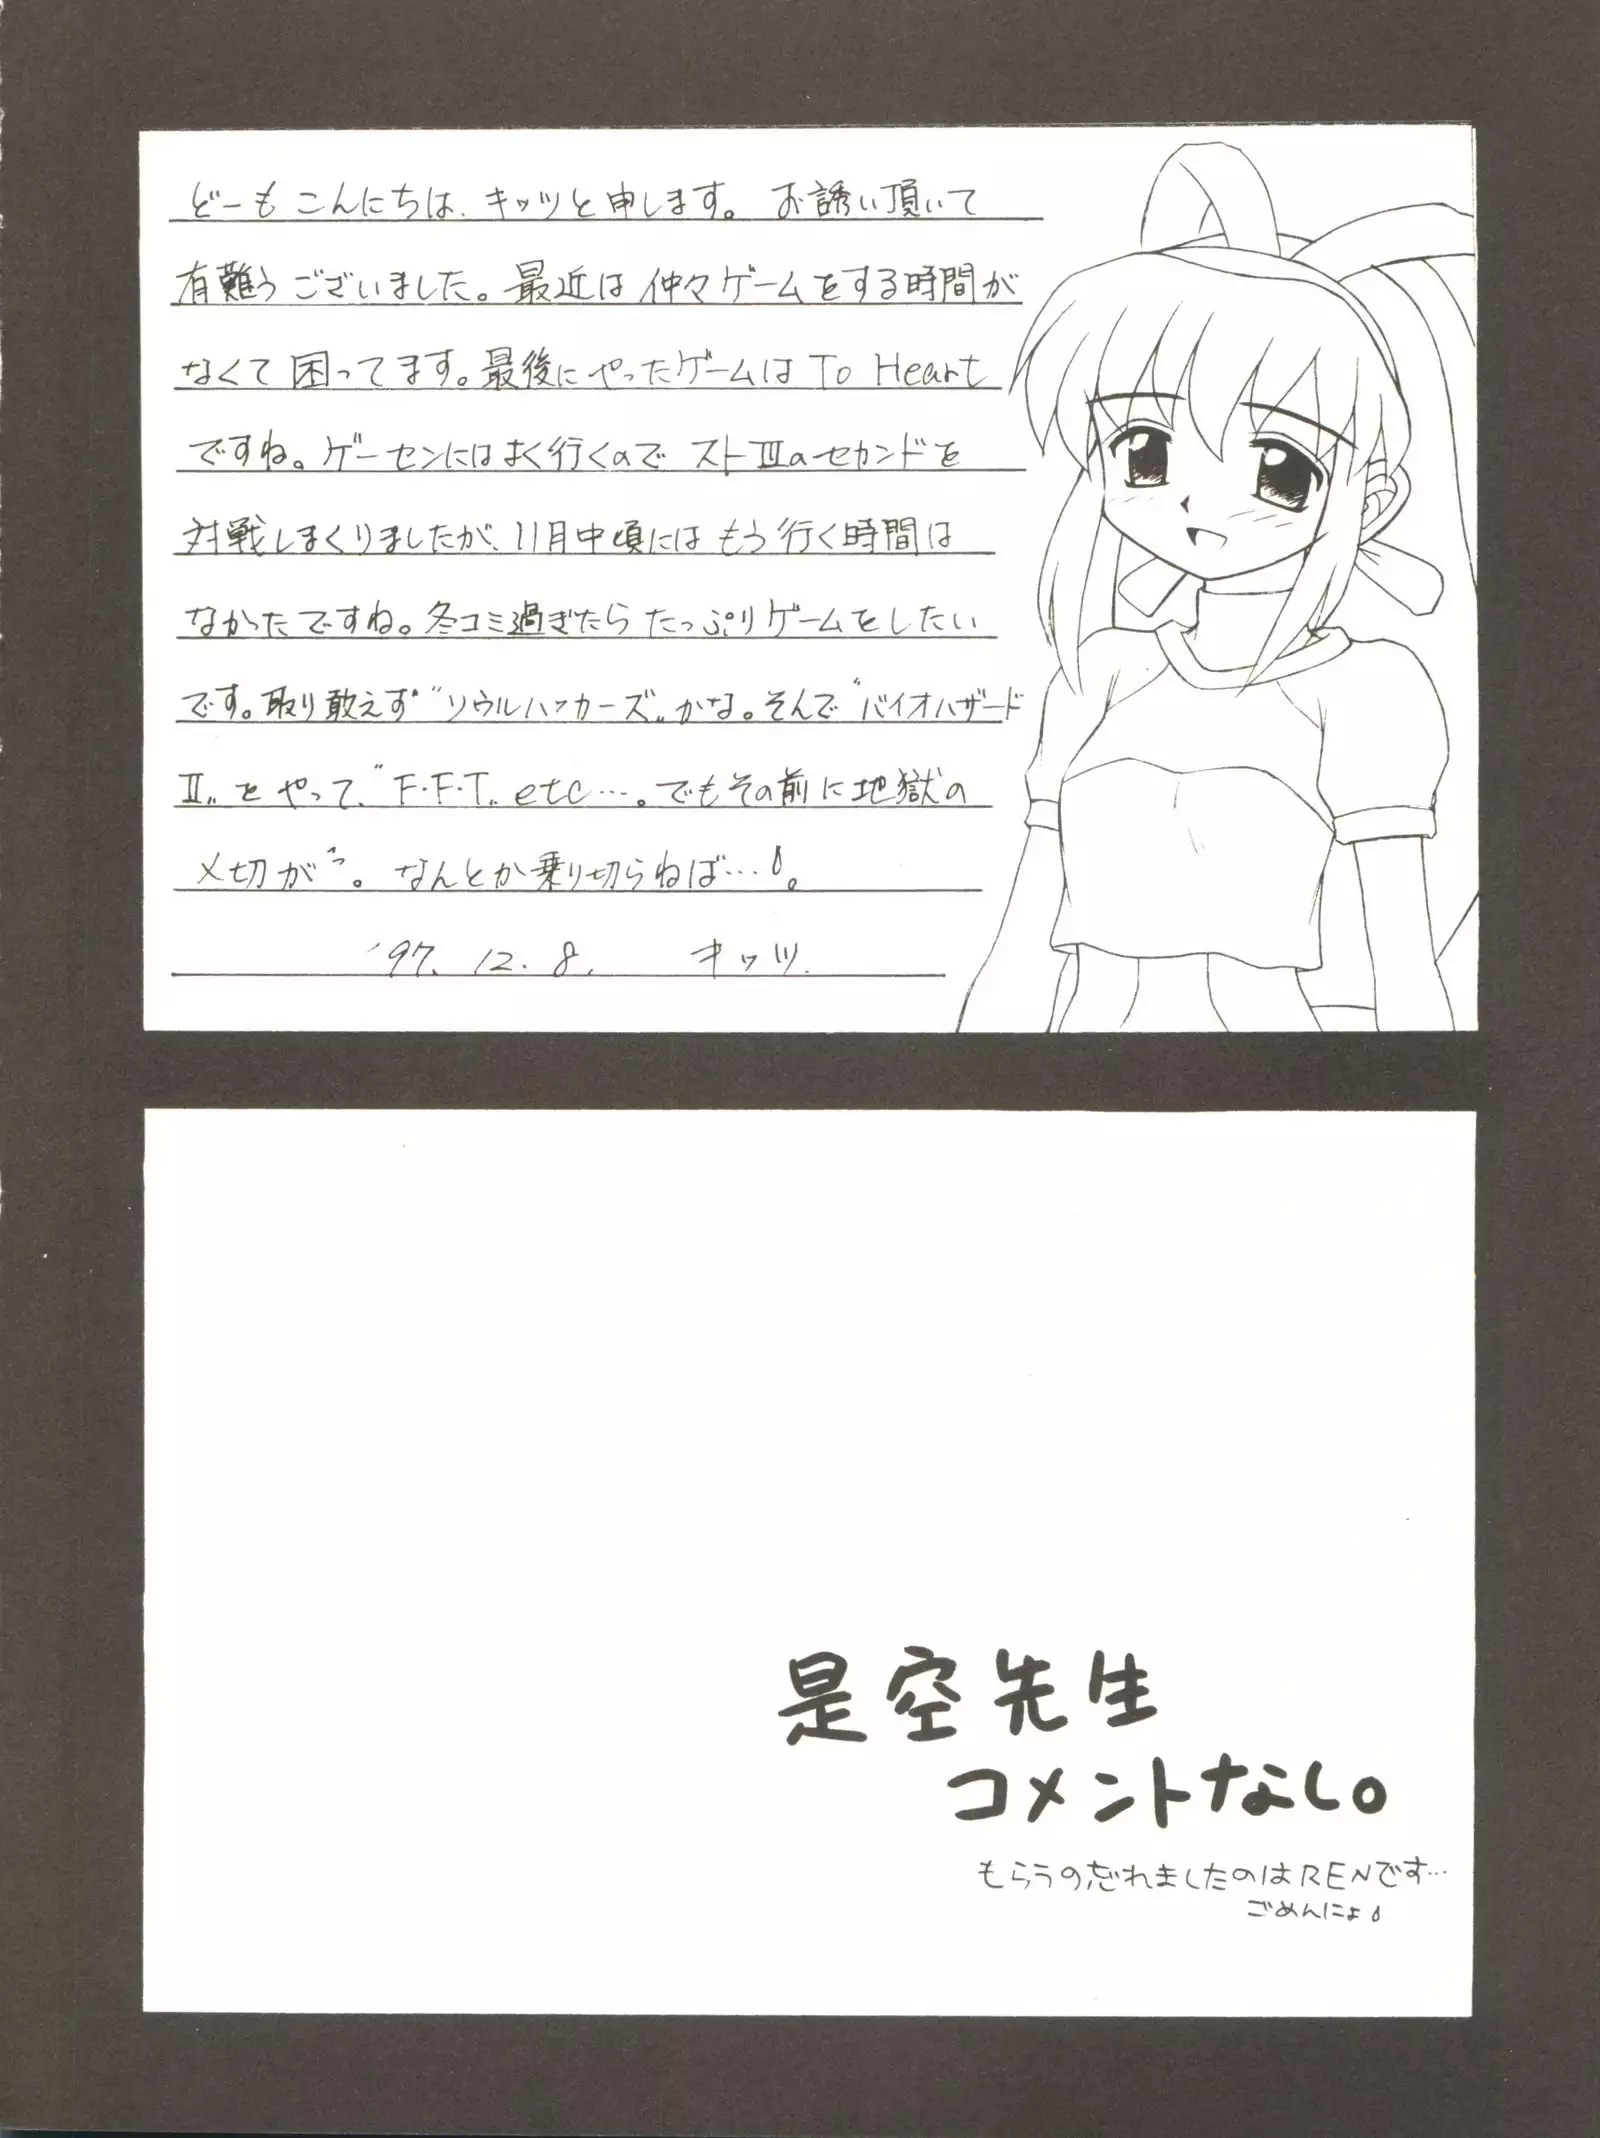 どーもこんにちは、キッツと申します。お誘い頂いて
有難うございました。最近は仲々ゲームをする時間が
なくて困ってます。最後にやったゲームは To Heart
ですね。ゲーセンにはよく行くのでストⅢのセカンドを
対戦しまくりましたが、11月中頃にはもう行く時間は
なかったですね。冬コミ過ぎたらたっぷりゲームをしたい
です。取り敢えず"ソウルハッカーズ"かな。そんで"バイオハザード
Ⅱ"をやって、"F・F・T" etc…。でもその前に地獄の
〆切がっ。なんとか乗り切らねば…。
'97. 12. 8. キッツ.
是空先生
コメントなし。
もらうの忘れましたのはRENです…
ごめんにょ